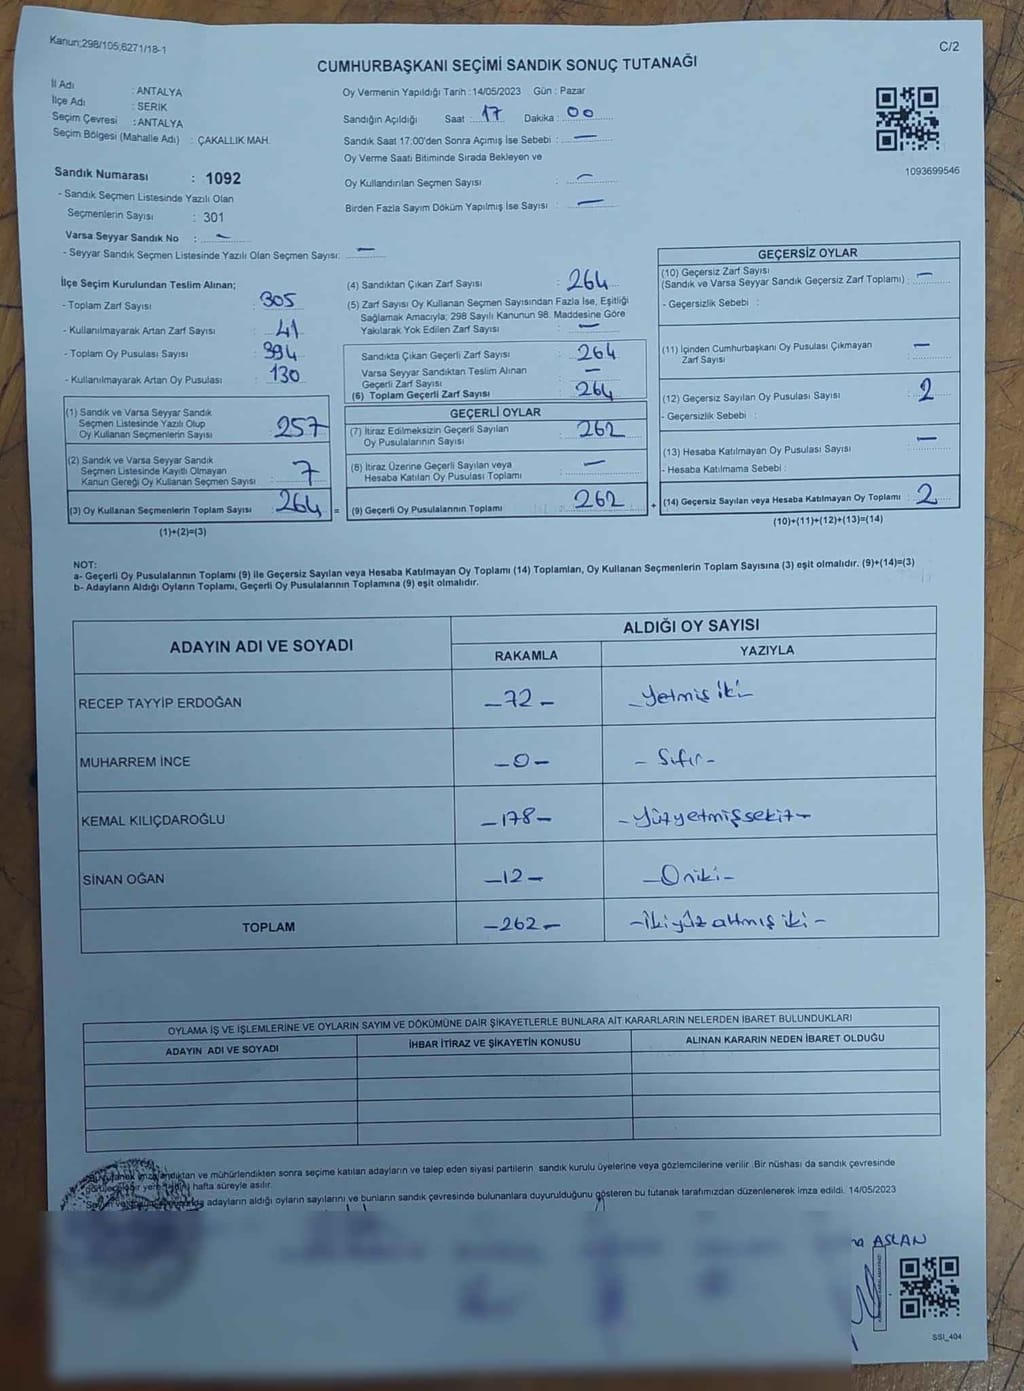 Kanun;298/105,6271/18-1
C/2
CUMHURBAŞKANI SEÇİMİ SANDIK SONUÇ TUTANAĞI
İl Adı : ANTALYA
İlçe Adı : SERİK
Seçim Çevresi : ANTALYA
Seçim Bölgesi (Mahalle Adı) : ÇAKALLIK MAH.
Sandık Numarası : 1092
- Sandık Seçmen Listesinde Yazılı Olan
Seçmenlerin Sayısı : 301
Varsa Seyyar Sandık No : –
- Seyyar Sandık Seçmen Listesinde Yazılı Olan Seçmen Sayısı: –
Oy Vermenin Yapıldığı Tarih :14/05/2023 Gün : Pazar
Sandığın Açıldığı Saat : 17 Dakika : 00
Sandık Saat 17:00'den Sonra Açımış İse Sebebi : –
Oy Verme Saati Bitiminde Sırada Bekleyen ve
Oy Kullandırılan Seçmen Sayısı : –
Birden Fazla Sayım Döküm Yapılmış İse Sayısı : –
1093699546
İlçe Seçim Kurulundan Teslim Alınan;
- Toplam Zarf Sayısı : 305
- Kullanılmayarak Artan Zarf Sayısı : 41
- Toplam Oy Pusulası Sayısı : 394
- Kullanılmayarak Artan Oy Pusulası : 130
(1) Sandık ve Varsa Seyyar Sandık
Seçmen Listesinde Yazılı Olup
Oy Kullanan Seçmenlerin Sayısı : 257
(2) Sandık ve Varsa Seyyar Sandık
Seçmen Listesinde Kayıtlı Olmayan
Kanun Gereği Oy Kullanan Seçmen Sayısı : 7
(3) Oy Kullanan Seçmenlerin Toplam Sayısı : 264 =
(1)+(2)=(3)
(4) Sandıktan Çıkan Zarf Sayısı : 264
(5) Zarf Sayısı Oy Kullanan Seçmen Sayısından Fazla İse, Eşitliği
Sağlamak Amacıyla; 298 Sayılı Kanunun 98. Maddesine Göre
Yakılarak Yok Edilen Zarf Sayısı : –
Sandıkta Çıkan Geçerli Zarf Sayısı : 264
Varsa Seyyar Sandıktan Teslim Alınan
Geçerli Zarf Sayısı : –
(6) Toplam Geçerli Zarf Sayısı : 264
GEÇERLİ OYLAR
(7) İtiraz Edilmeksizin Geçerli Sayılan
Oy Pusulalarının Sayısı : 262
(8) İtiraz Üzerine Geçerli Sayılan veya
Hesaba Katılan Oy Pusulası Toplamı : –
(9) Geçerli Oy Pusulalarının Toplamı : 262 +
GEÇERSİZ OYLAR
(10) Geçersiz Zarf Sayısı
(Sandık ve Varsa Seyyar Sandık Geçersiz Zarf Toplamı) : –
- Geçersizlik Sebebi :
(11) İçinden Cumhurbaşkanı Oy Pusulası Çıkmayan
Zarf Sayısı : –
(12) Geçersiz Sayılan Oy Pusulası Sayısı : 2
- Geçersizlik Sebebi :
(13) Hesaba Katılmayan Oy Pusulası Sayısı : –
- Hesaba Katılmama Sebebi :
(14) Geçersiz Sayılan veya Hesaba Katılmayan Oy Toplamı : 2
(10)+(11)+(12)+(13)=(14)
NOT:
a- Geçerli Oy Pusulalarının Toplamı (9) ile Geçersiz Sayılan veya Hesaba Katılmayan Oy Toplamı (14) Toplamları, Oy Kullanan Seçmenlerin Toplam Sayısına (3) eşit olmalıdır. (9)+(14)=(3)
b- Adayların Aldığı Oyların Toplamı, Geçerli Oy Pusulalarının Toplamına (9) eşit olmalıdır.
ADAYIN ADI VE SOYADI
ALDIĞI OY SAYISI
RAKAMLA YAZIYLA
RECEP TAYYİP ERDOĞAN –72– –Yetmiş iki–
MUHARREM İNCE –0– –Sıfır–
KEMAL KILIÇDAROĞLU –178– –Yüzyetmişsekiz–
SİNAN OĞAN –12– –Oniki–
TOPLAM –262– –İkiyüz altmış iki–
OYLAMA İŞ VE İŞLEMLERİNE VE OYLARIN SAYIM VE DÖKÜMÜNE DAİR ŞİKAYETLERLE BUNLARA AİT KARARLARIN NELERDEN İBARET BULUNDUKLARI
ADAYIN ADI VE SOYADI İHBAR İTİRAZ VE ŞİKAYETİN KONUSU ALINAN KARARIN NEDEN İBARET OLDUĞU
sonra seçime katılan adayların ve talep eden siyasi partilerin sandık kurulu üyelerine veya gözlemcilerine verilir. Bir nüshası da sandık çevresinde
hafta süreyle asılır.
adayların aldığı oyların sayılarını ve bunların sandık çevresinde bulunanlara duyurulduğunu gösteren bu tutanak tarafımızdan düzenlenerek imza edildi. 14/05/2023
ASLAN
SSI_404